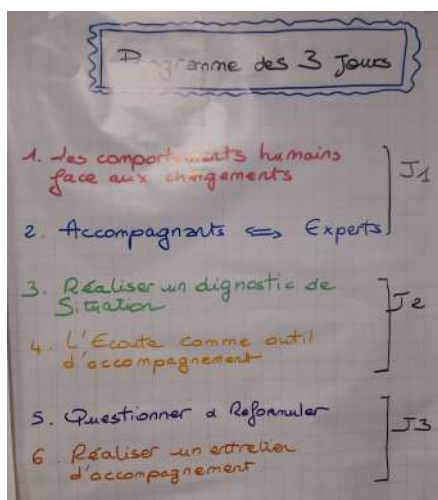 Programme des 3 Jours
1. Les comportements humains
face aux changements
J1
2. Accompagnants <=> Experts
3. Réaliser un dignostic de
Situation
J2
4. L'Ecoute comme outil
d'accompagnement
5. Questionner a Reformuler
J3
6 Réaliser un entretien
d'accompagnement